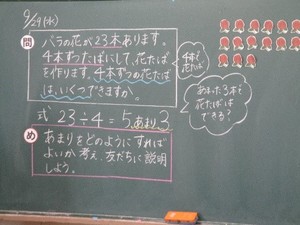 9/29(水)
問
バラの花が23本あります。
4本ずつたばにして、花たば
を作ります。4本ずつの花たば
は、いくつできますか。
4本で
花たば
あまった3本で
花たばは
できる?
式 23÷4=5あまり3
め
あまりをどのようにすれば
よいか考え、友だちに説明
しよう。